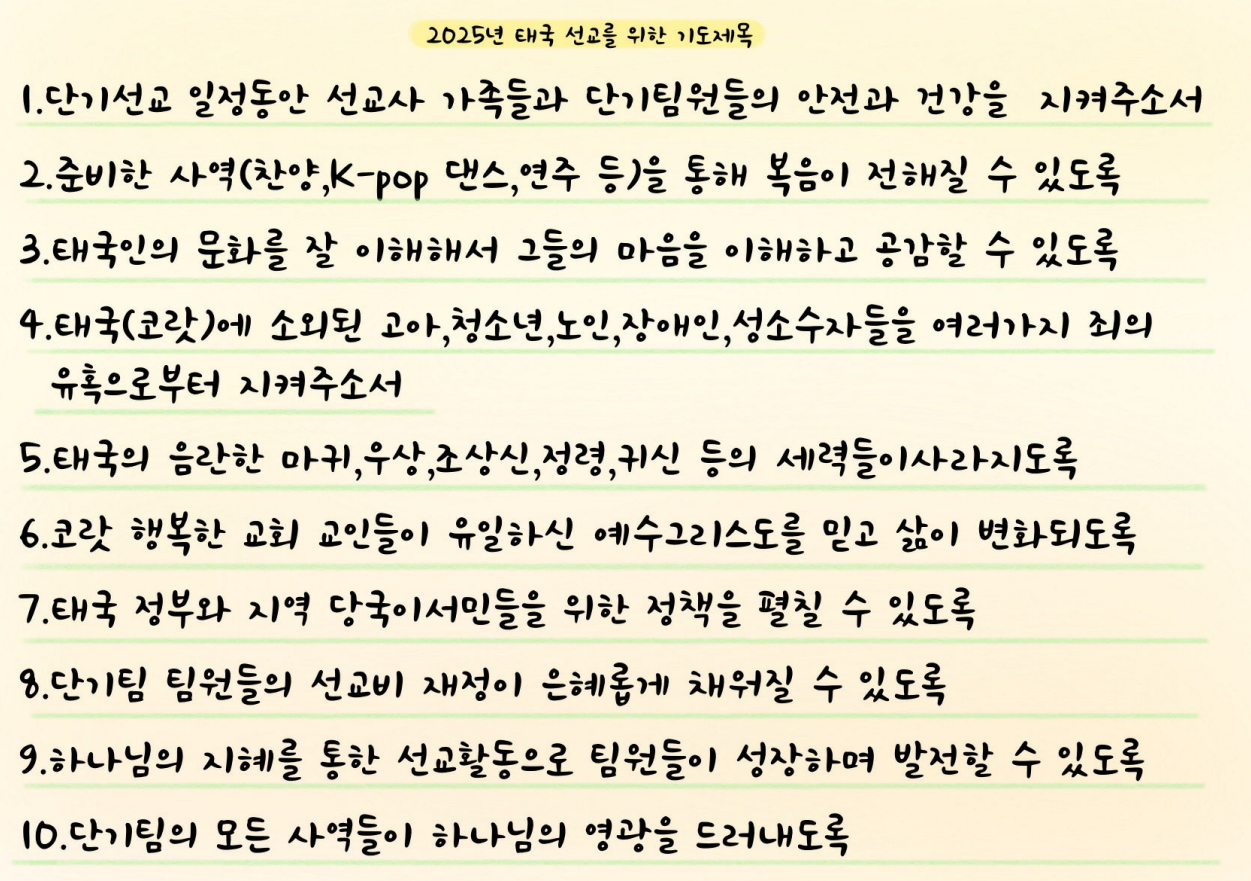 2025년 태국 선교를 위한 기도제목
1.단기선교 일정동안 선교사 가족들과 단기팀원들의 안전과 건강을 지켜주소서
2.준비한 사역(찬양,K-pop 댄스,연주 등)을 통해 복음이 전해질 수 있도록
3.태국인의 문화를 잘 이해해서 그들의 마음을 이해하고 공감할 수 있도록
4.태국(코랏)에 소외된 고아,청소년,노인,장애인,성소수자들을 여러가지 죄의
유혹으로부터 지켜주소서
5.태국의 음란한 마귀,우상,조상신,정령,귀신 등의 세력들이사라지도록
6.코랏 행복한 교회 교인들이 유일하신 예수그리스도를 믿고 삶이 변화되도록
7.태국 정부와 지역 당국이서민들을 위한 정책을 펼칠 수 있도록
8.단기팀 팀원들의 선교비 재정이 은혜롭게 채워질 수 있도록
9.하나님의 지혜를 통한 선교활동으로 팀원들이 성장하며 발전할 수 있도록
10.단기팀의 모든 사역들이 하나님의 영광을 드러내도록